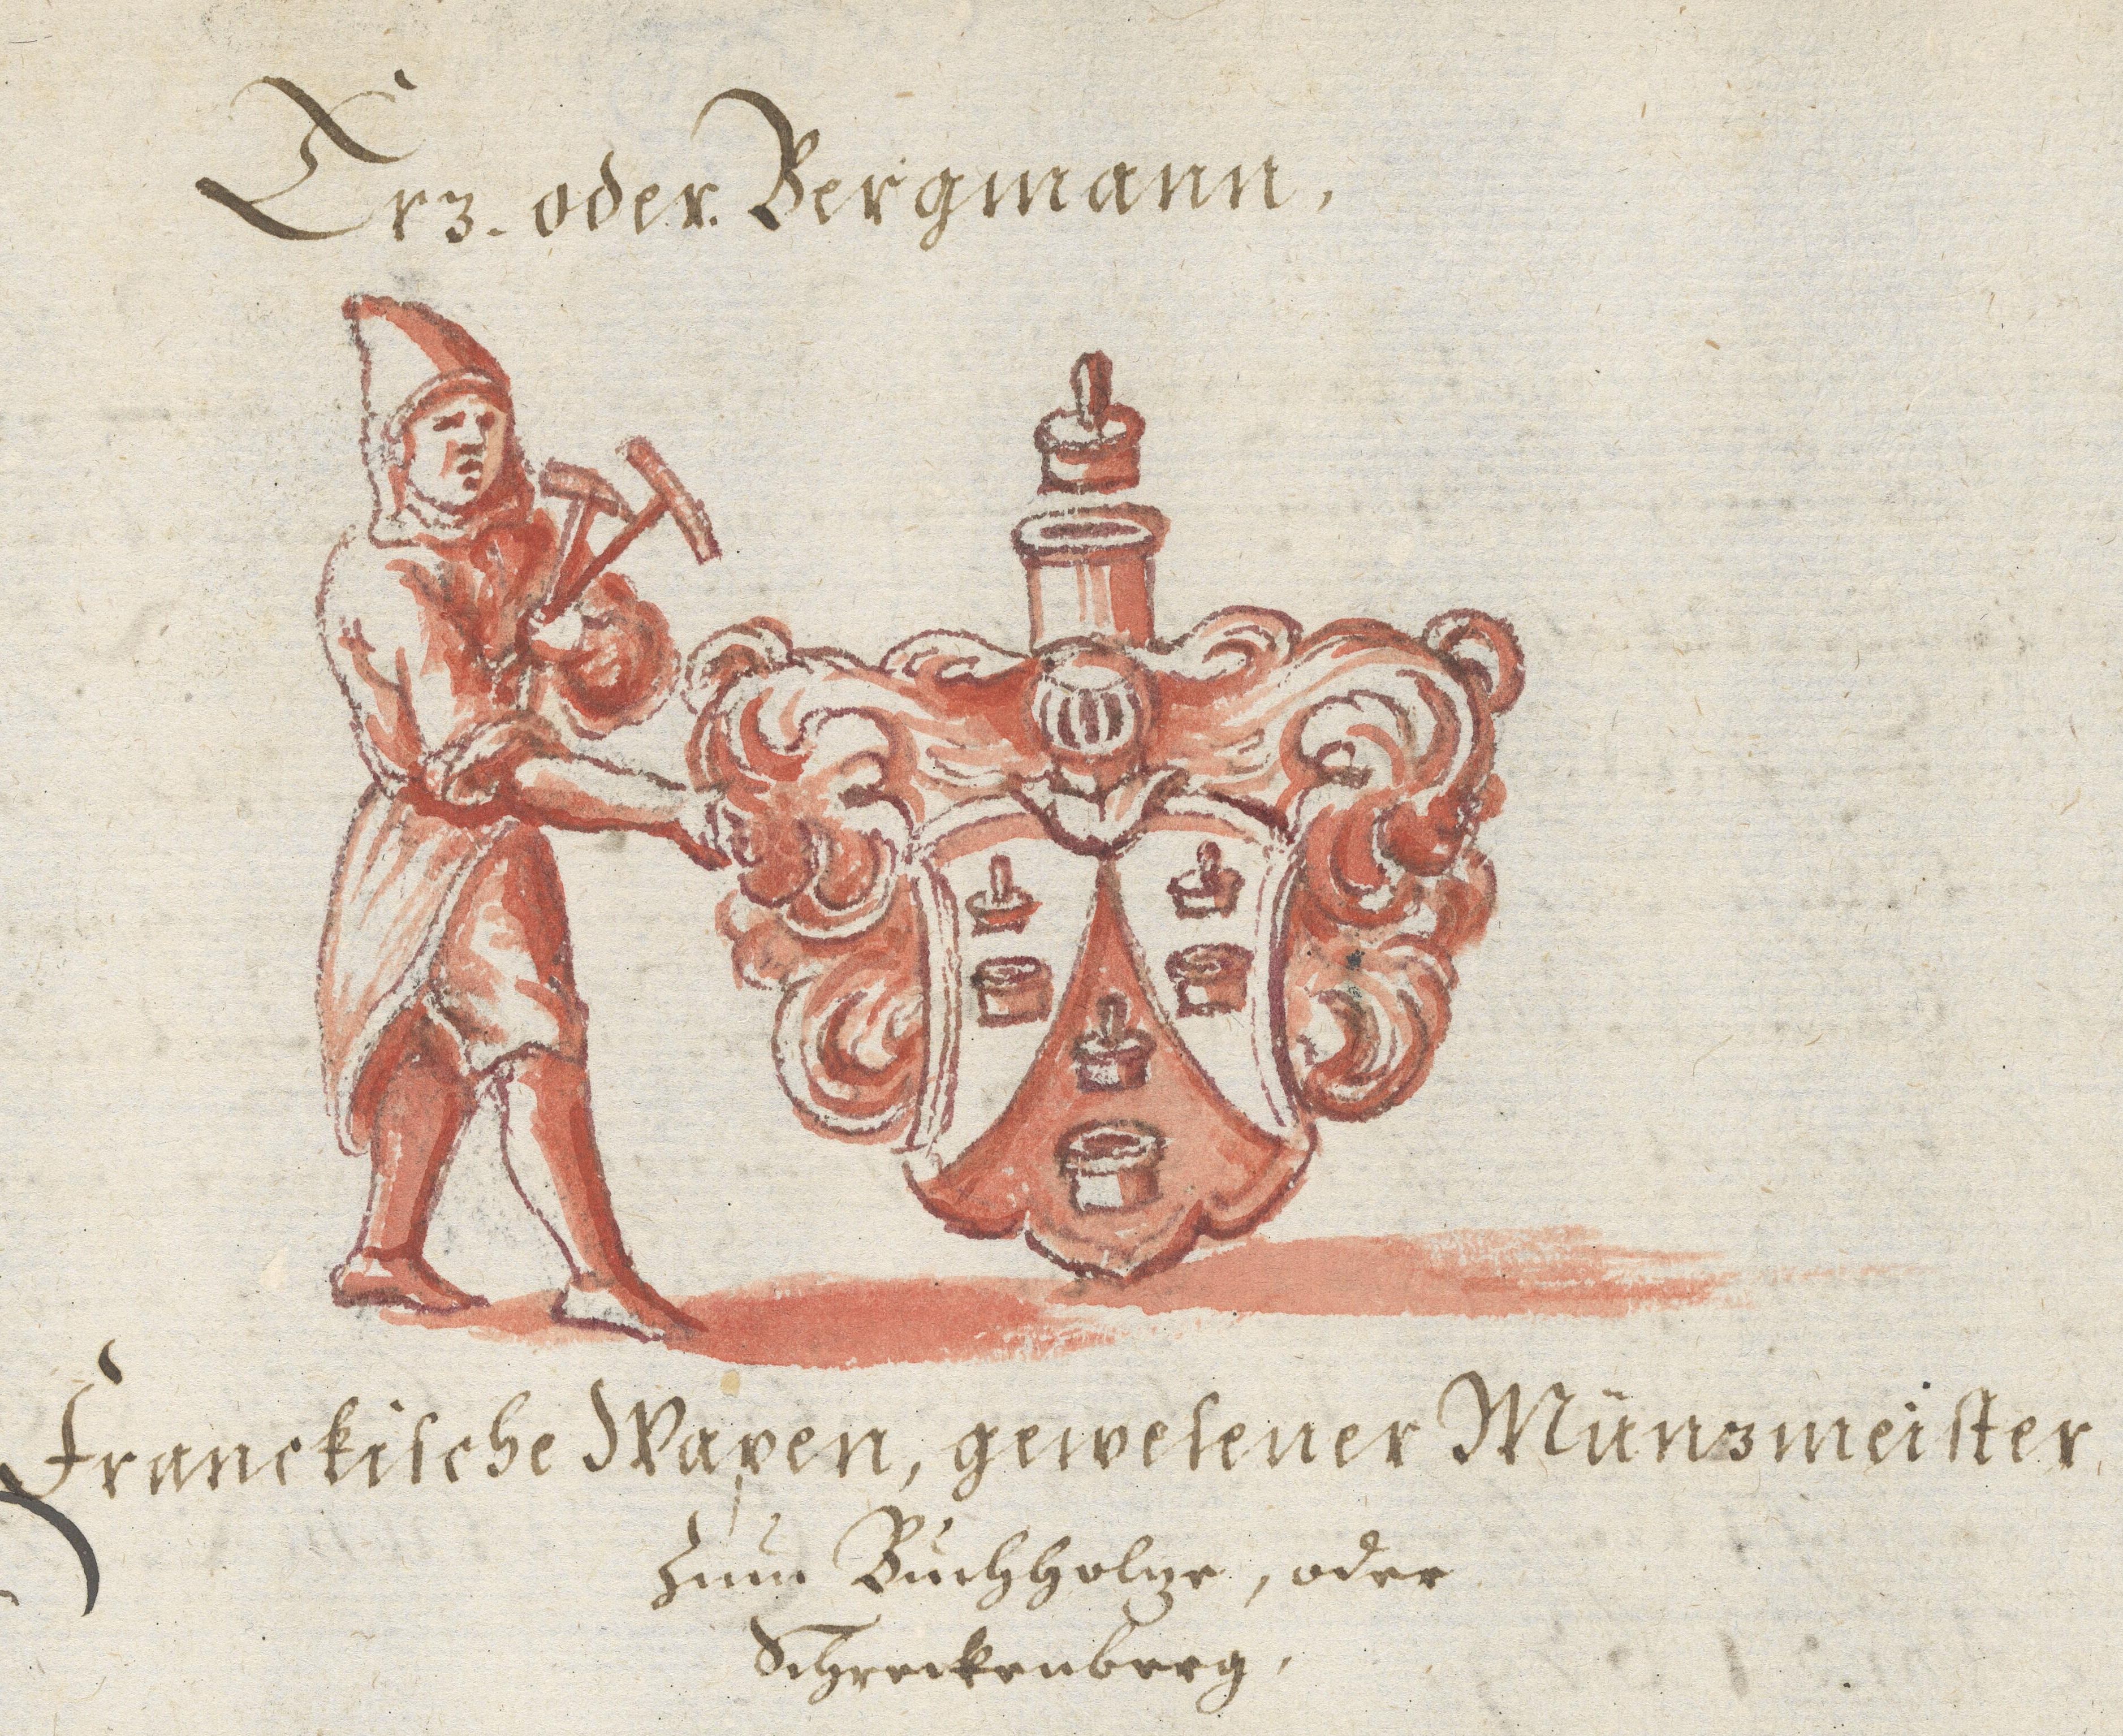 Erz- oder Bergmann,
Franckische Wapen, gewesener Münzmeister
zum Buchholze, oder
Schreckenberg,